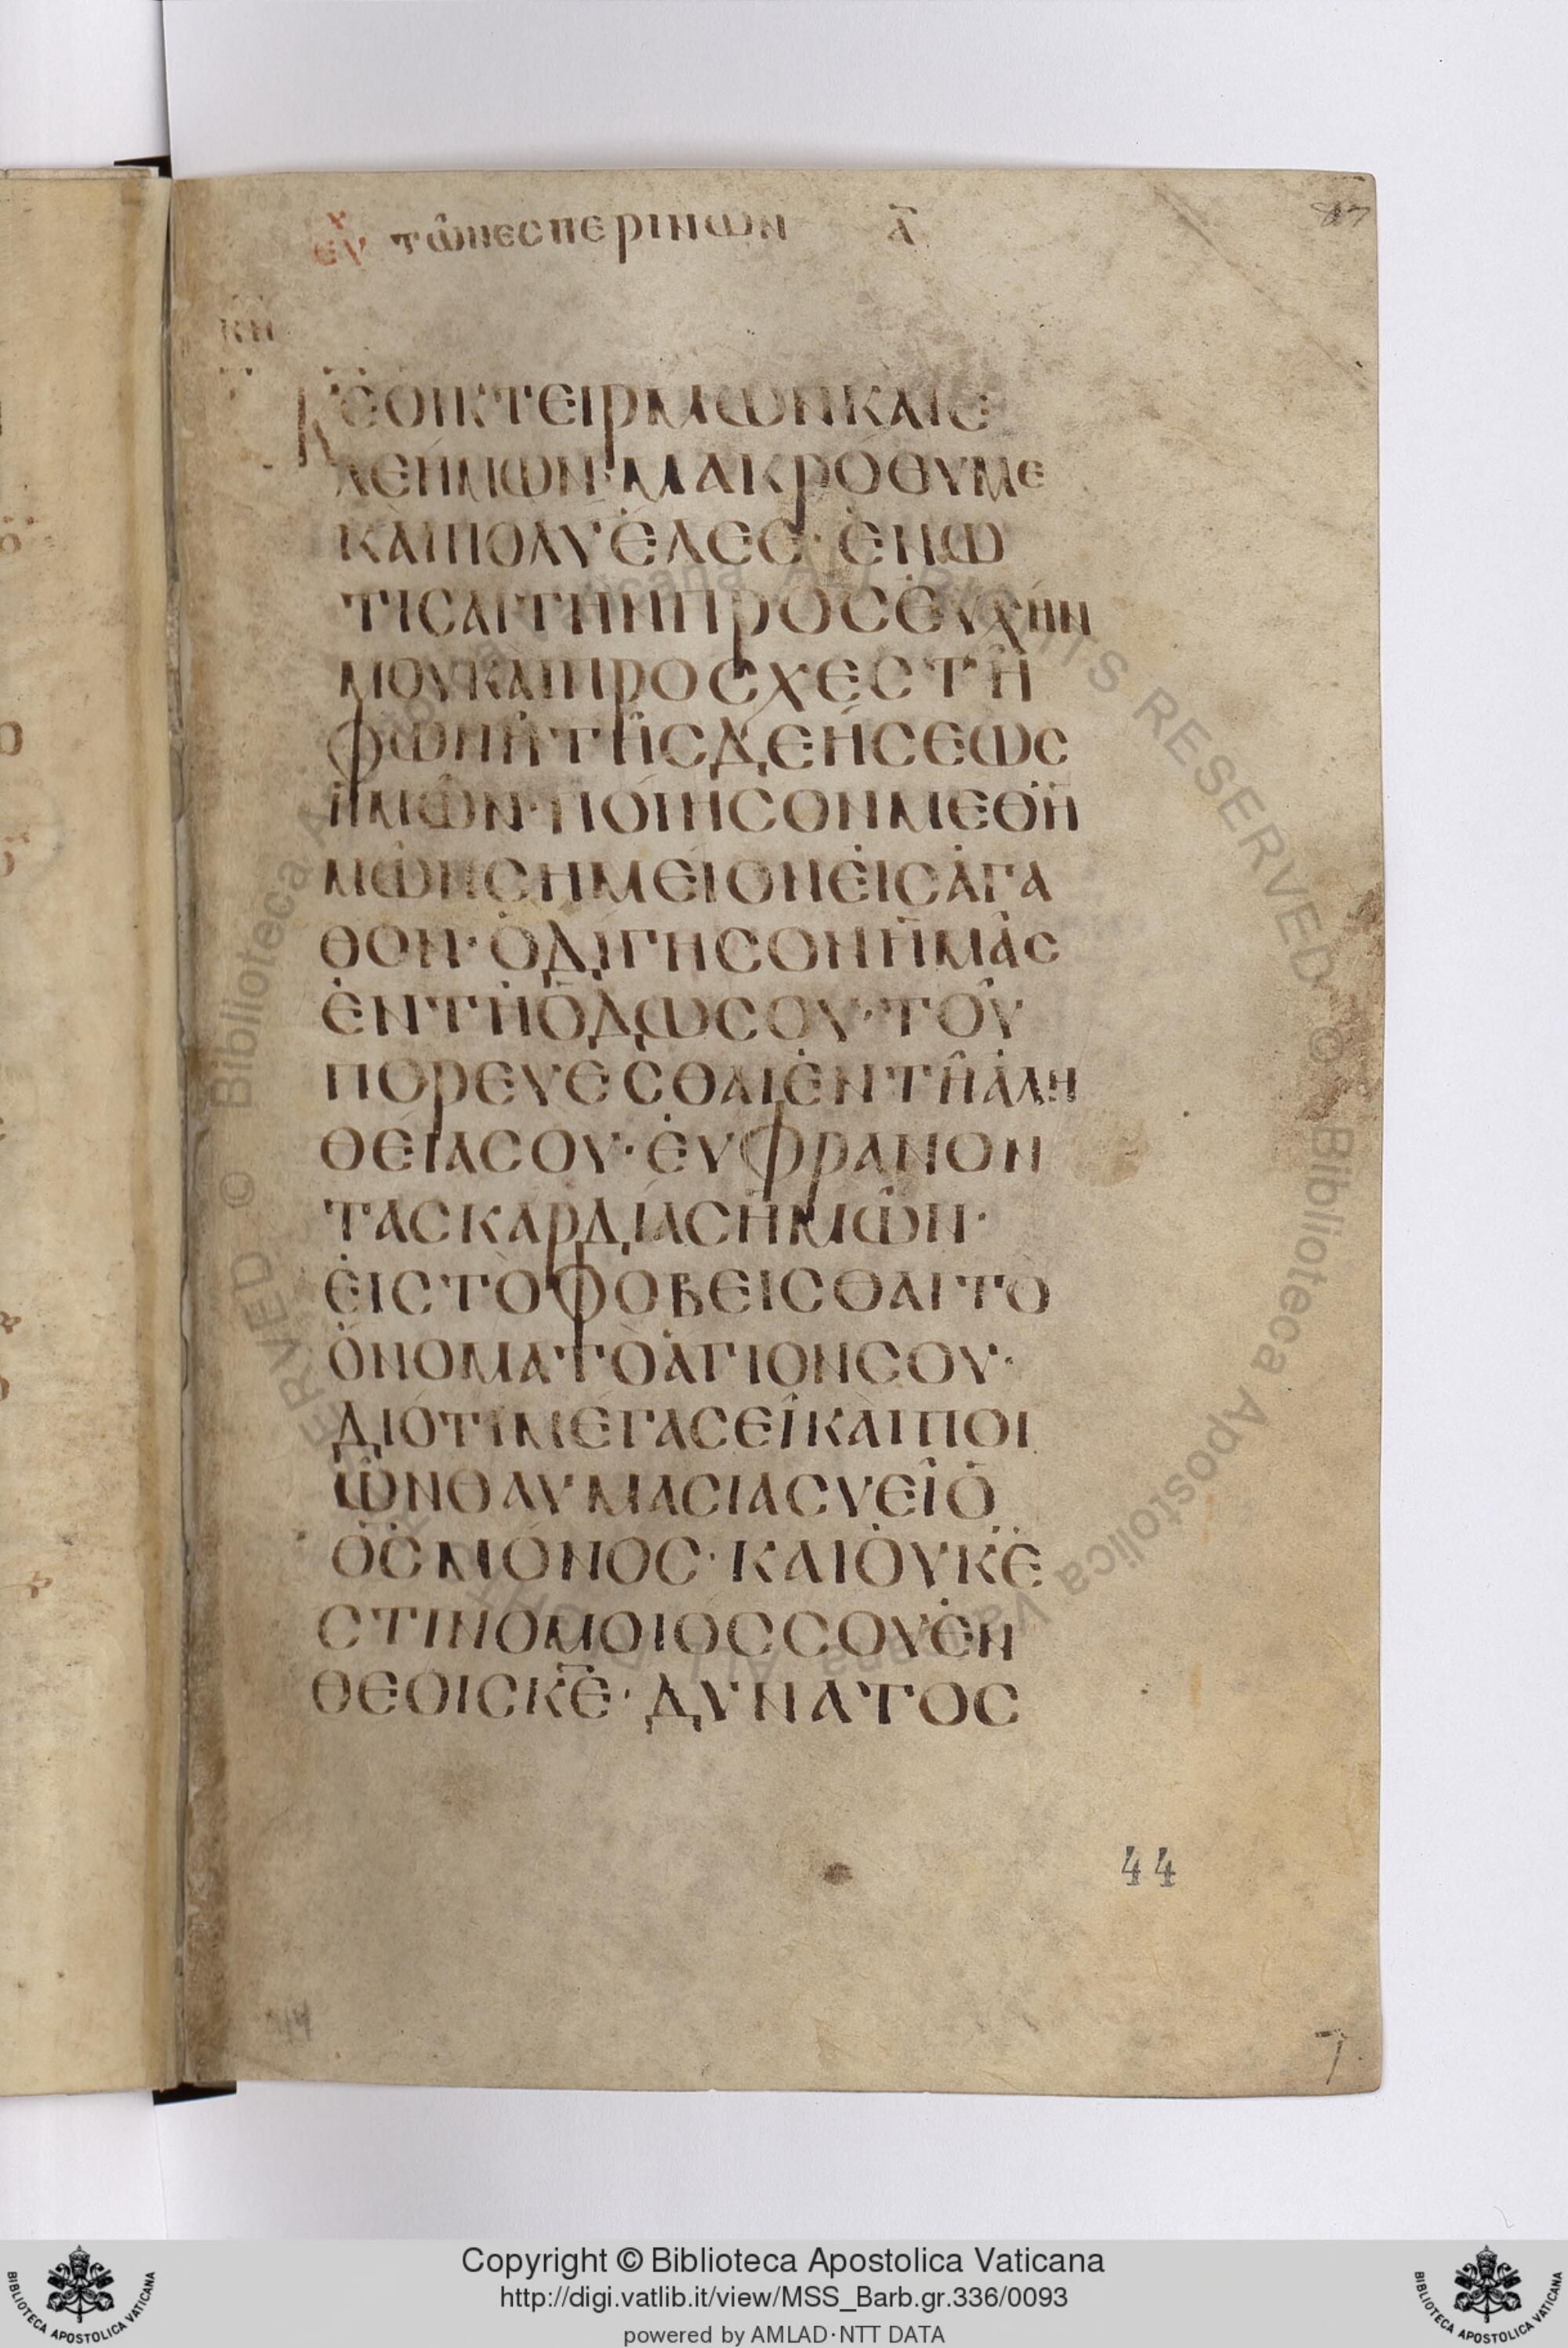 εὐχ τῶν ἑσπερινῶν ᾱ
87
κη
Κ̅Ε̅ ΟΙΚΤΕΙΡΜΩΝ ΚΑΙ Ε
ΛΕΗΜΩΝ· ΜΑΚΡΟΘΥΜΕ
ΚΑΙ ΠΟΛΥΕΛΕΕ· ΕΝΩ
ΤΙΣΑΙ ΤΗΝ ΠΡΟΣΕΥΧΗΝ
ΜΟΥ ΚΑΙ ΠΡΟΣΧΕΣ ΤΗ
ΦΩΝΗ ΤΗΣ ΔΕΗΣΕΩΣ
ΗΜΩΝ· ΠΟΙΗΣΟΝ ΜΕΘ Η
ΜΩΝ ΣΗΜΕΙΟΝ ΕΙΣ ΑΓΑ
ΘΟΝ· ΟΔΙΓΗΣΟΝ ΗΜΑΣ
ΕΝ ΤΗ ΟΔΩ ΣΟΥ· ΤΟΥ
ΠΟΡΕΥΕΣΘΑΙ ΕΝ ΤΗ ΑΛΗ
ΘΕΙΑ ΣΟΥ· ΕΥΦΡΑΝΟΝ
ΤΑΣ ΚΑΡΔΙΑΣ ΗΜΩΝ·
ΕΙΣ ΤΟ ΦΟΒΕΙΣΘΑΙ ΤΟ
ΟΝΟΜΑ ΤΟ ΑΓΙΟΝ ΣΟΥ·
ΔΙΟΤΙ ΜΕΓΑΣ ΕΙ ΚΑΙ ΠΟΙ
ΩΝ ΘΑΥΜΑΣΙΑ ΣΥ ΕΙ Ο
Θ̅Σ̅ ΜΟΝΟΣ· ΚΑΙ ΟΥΚ Ε
ΣΤΙΝ ΟΜΟΙΟΣ ΣΟΥ ΕΝ
ΘΕΟΙΣ Κ̅Ε̅· ΔΥΝΑΤΟΣ
44
44
7
Copyright © Biblioteca Apostolica Vaticana
http://digi.vatlib.it/view/MSS_Barb.gr.336/0093
powered by AMLAD·NTT DATA
BIBLIOTECA APOSTOLICA VATICANA
BIBLIOTECA APOSTOLICA VATICANA